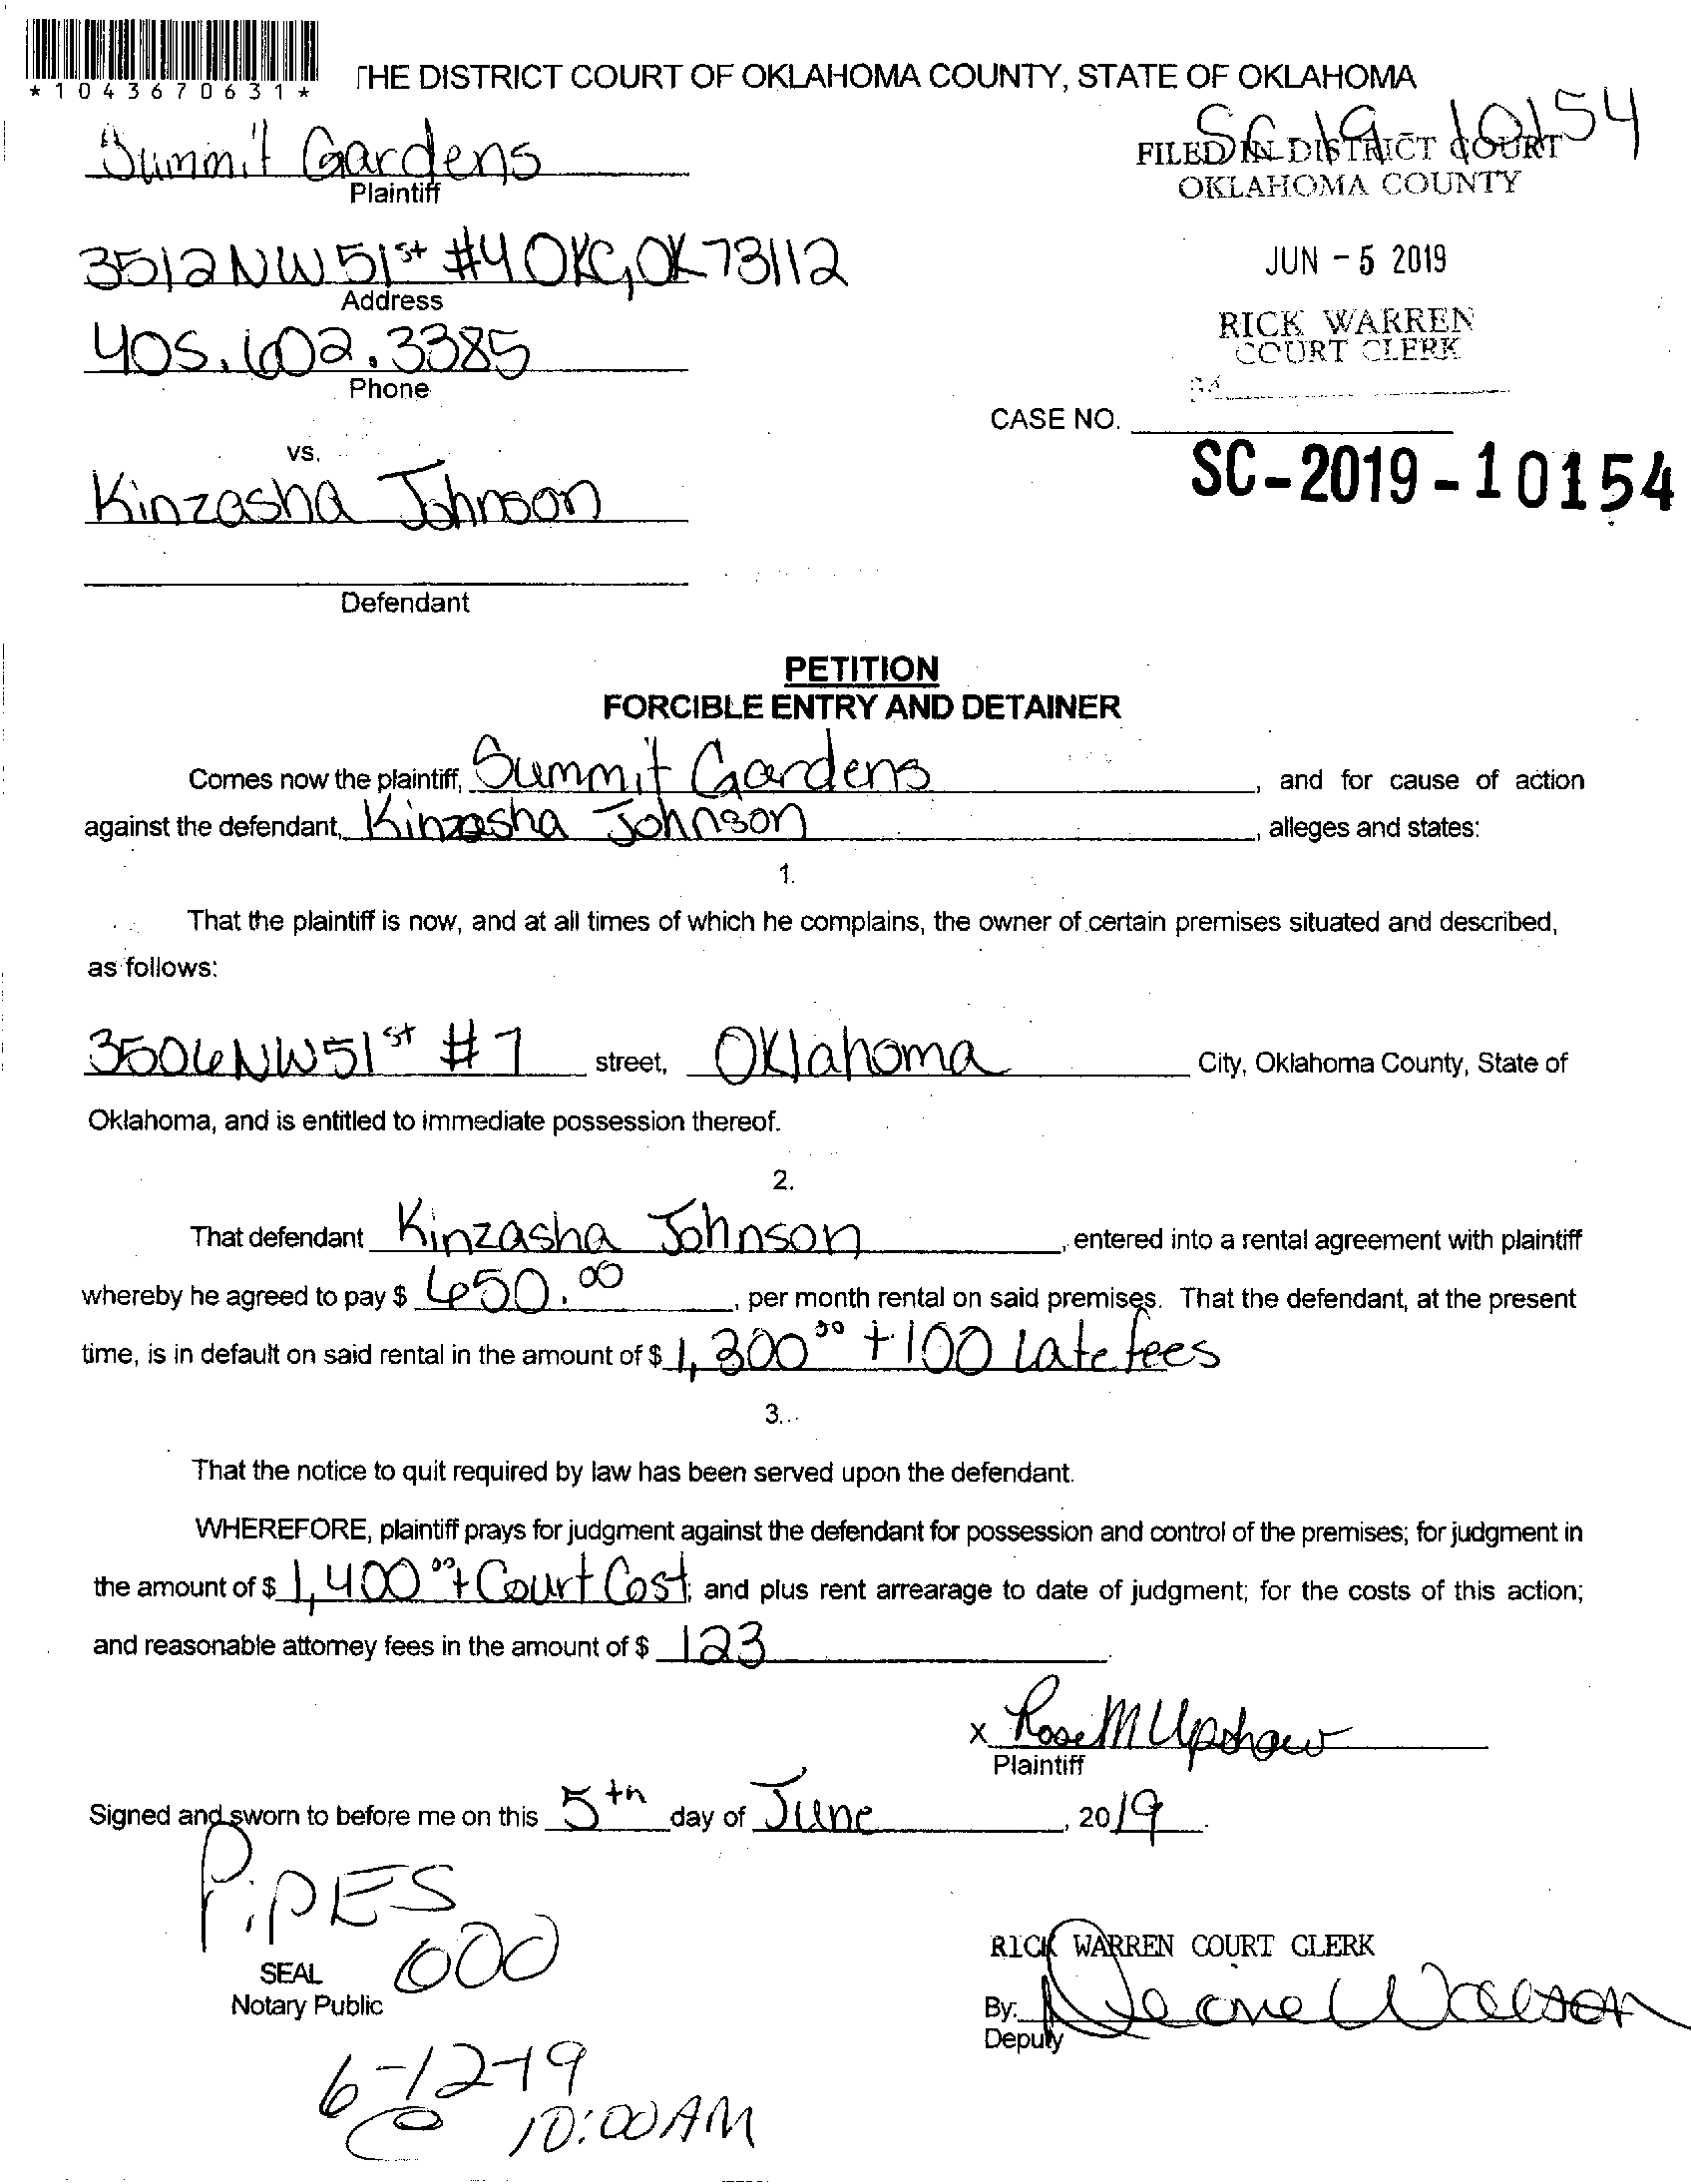 *1043670631*
THE DISTRICT COURT OF OKLAHOMA COUNTY, STATE OF OKLAHOMA
SC 19 10154
Summit Gardens
Plaintiff
FILED IN DISTRICT COURT
OKLAHOMA COUNTY
3512 NW 51st #4 OKC, OK 73112
Address
JUN - 5 2019
405.602.3385
Phone
RICK WARREN
COURT CLERK
CASE NO.
SC-2019-10154
vs.
Kinzasha Johnson
Defendant
PETITION
FORCIBLE ENTRY AND DETAINER
Comes now the plaintiff, Summit Gardens, and for cause of action
against the defendant, Kinzasha Johnson, alleges and states:
1.
That the plaintiff is now, and at all times of which he complains, the owner of certain premises situated and described,
as follows:
3506 NW 51st #7 street, Oklahoma City, Oklahoma County, State of
Oklahoma, and is entitled to immediate possession thereof.
2.
That defendant Kinzasha Johnson, entered into a rental agreement with plaintiff
whereby he agreed to pay $ 650.00, per month rental on said premises. That the defendant, at the present
time, is in default on said rental in the amount of $ 1,300.00 + 100 Late fees
3.
That the notice to quit required by law has been served upon the defendant.
WHEREFORE, plaintiff prays for judgment against the defendant for possession and control of the premises; for judgment in
the amount of $ 1,400.00 + Court Cost; and plus rent arrearage to date of judgment; for the costs of this action;
and reasonable attorney fees in the amount of $ 123.
x Rose M Upshaw
Plaintiff
Signed and sworn to before me on this 5th day of June, 2019.
PiPES
600
SEAL
Notary Public
RICK WARREN COURT CLERK
By:
Deputy
6-12-19
@ 10:00 AM